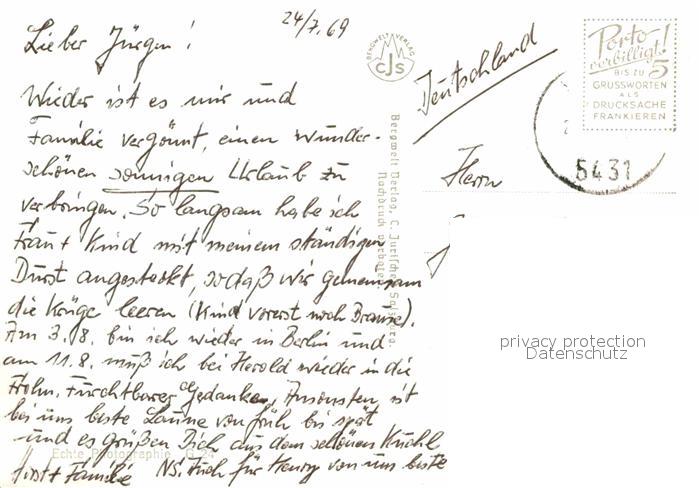 24/7.69
Lieber Jürgen!
Wieder ist es mir und
Familie vergönnt, einen wunder-
schönen sonnigen Urlaub zu
verbringen. So langsam habe ich
Frau + Kind mit meinem ständigen
Durst angesteckt, sodaß wir gemeinsam
die Krüge leeren (Kind vorerst noch Brause).
Am 3.8. bin ich wieder in Berlin und
am 11.8. muß ich bei Herold wieder in die
Frohn. Furchtbarer Gedanke. Ansonsten ist
bei uns beste Laune von früh bis spät
und es grüßen Dich aus dem schönen Kuchl
Horst + Familie NS. Auch für Henry von uns beste
Echte Photographie G 24
BERGWELT VERLAG
CJS
Bergwelt Verlag, C. Jurischek, Salzburg.
Nachdruck verboten
Deutschland
Herrn
Porto
verbilligt!
BIS ZU 5
GRUSSWORTEN
ALS
DRUCKSACHE
FRANKIEREN
5431
privacy protection
Datenschutz